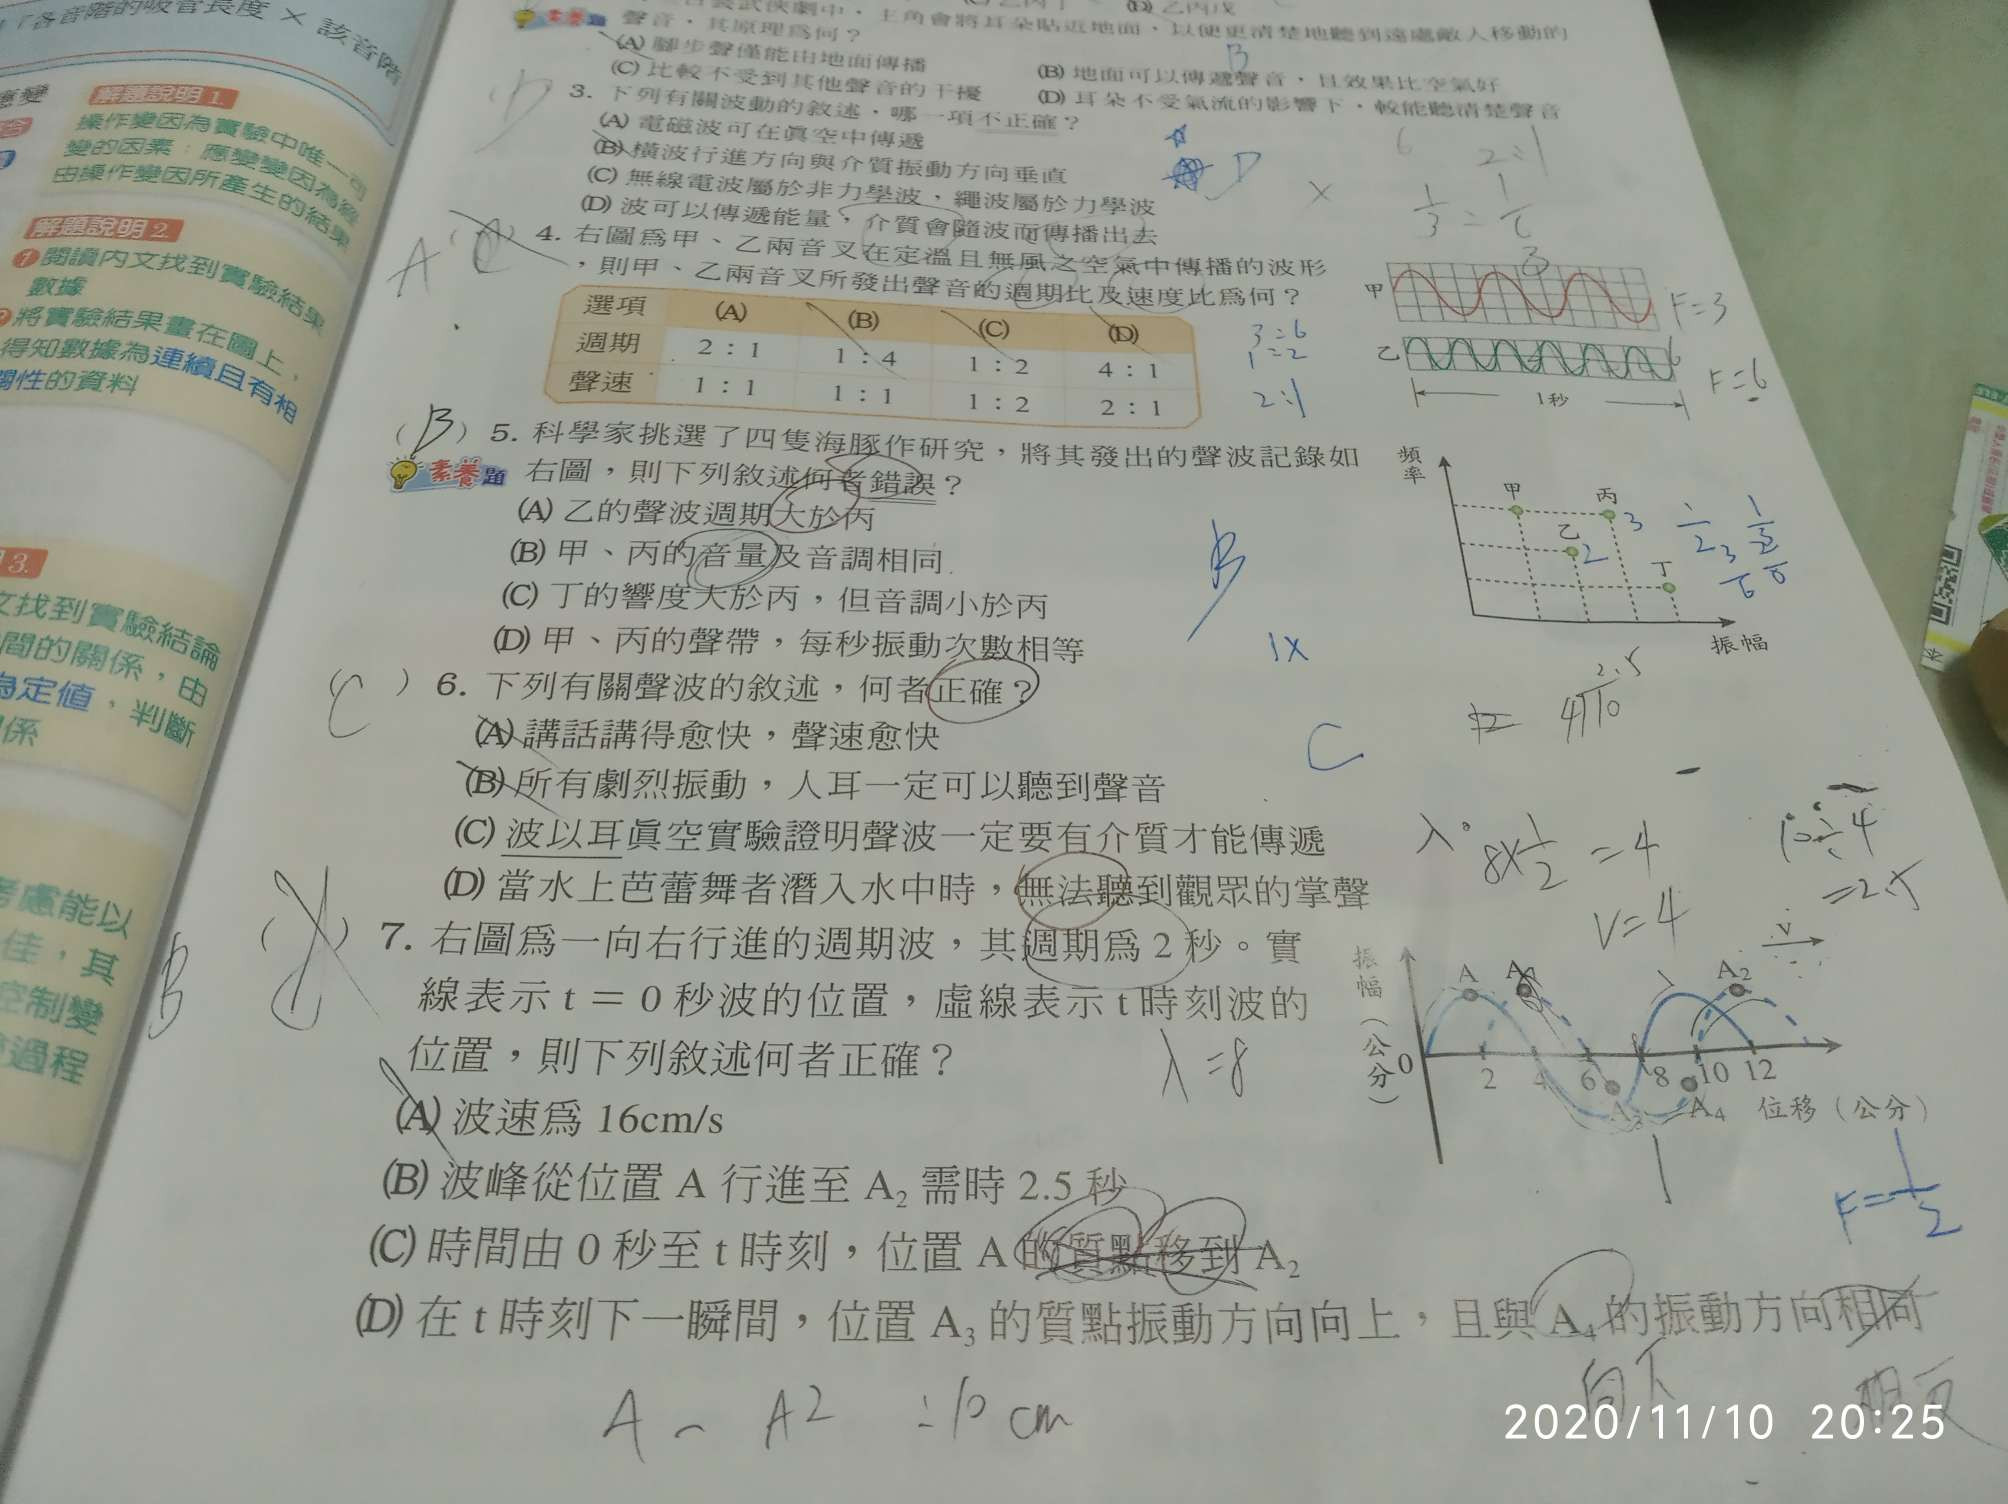 各音階的吸管長度 × 該音階
應變
解題說明1.
操作變因為實驗中唯一可
變的因素;應變變因為經
由操作變因所產生的結果
解題說明2.
❶閱讀內文找到實驗結果
數據
將實驗結果畫在圖上,
得知數據為連續且有相
關性的資料
3.
文找到實驗結論
間的關係,由
為定值,判斷
係
考慮能以
佳,其
控制變
過程
劇中,主角會將耳朵貼近地面,以便更清楚地聽到遠處敵人移動的
素養題 聲音,其原理為何?
(A) 腳步聲僅能由地面傳播
(B) 地面可以傳遞聲音,且效果比空氣好
(C) 比較不受到其他聲音的干擾
(D) 耳朵不受氣流的影響下,較能聽清楚聲音
B
3. 下列有關波動的敘述,哪一項不正確?
(A) 電磁波可在真空中傳遞
(B) 橫波行進方向與介質振動方向垂直
(C) 無線電波屬於非力學波,繩波屬於力學波
(D) 波可以傳遞能量,介質會隨波而傳播出去
D
A
4. 右圖為甲、乙兩音叉在定溫且無風之空氣中傳播的波形
,則甲、乙兩音叉所發出聲音的週期比及速度比為何?
選項 (A) (B) (C) (D)
週期 2:1 1:4 1:2 4:1
聲速 1:1 1:1 1:2 2:1
3:6
1=2
2:1
甲
F=3
乙
F=6
1秒
( B ) 5. 科學家挑選了四隻海豚作研究,將其發出的聲波記錄如
素養題 右圖,則下列敘述何者錯誤?
(A) 乙的聲波週期大於丙
(B) 甲、丙的音量及音調相同
(C) 丁的響度大於丙,但音調小於丙
(D) 甲、丙的聲帶,每秒振動次數相等
頻率
甲
丙
3
乙
2
丁
振幅
B
C ) 6. 下列有關聲波的敘述,何者正確?
(A) 講話講得愈快,聲速愈快
(B) 所有劇烈振動,人耳一定可以聽到聲音
(C) 波以耳真空實驗證明聲波一定要有介質才能傳遞
(D) 當水上芭蕾舞者潛入水中時,無法聽到觀眾的掌聲
C
2.5
4 10
8×1/2 =4
V=4
10÷4
=2.5
B
7. 右圖為一向右行進的週期波,其週期為 2 秒。實
線表示 t = 0 秒波的位置,虛線表示 t 時刻波的
位置,則下列敘述何者正確?
(A) 波速為 16cm/s
(B) 波峰從位置 A 行進至 A₂ 需時 2.5 秒
(C) 時間由 0 秒至 t 時刻,位置 A 的質點移到 A₂
(D) 在 t 時刻下一瞬間,位置 A₃ 的質點振動方向向上,且與 A₄ 的振動方向相同
λ=8
振幅(公分)
v
A
A₂
0 2 4 6 8 10 12
A₃
A₄
位移(公分)
F=1/2
向下
A ~ A2 =10 cm
2020/11/10 20:25